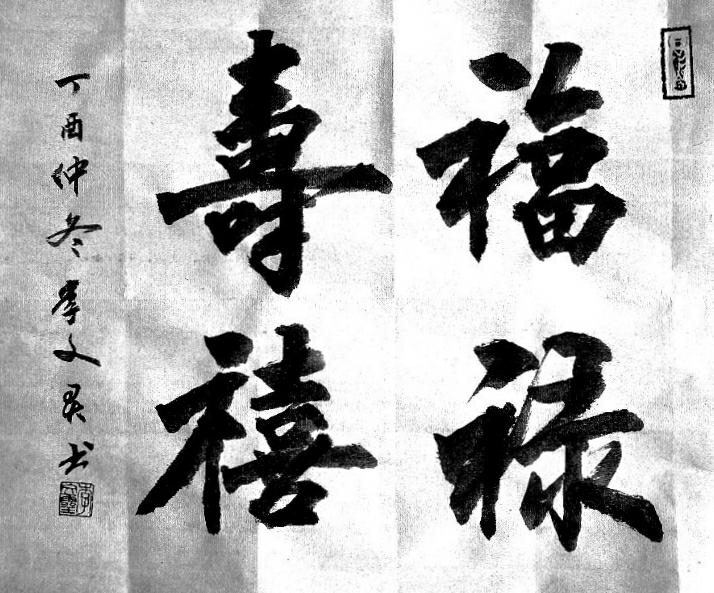 福禄
壽禧
丁酉仲冬李文灵书